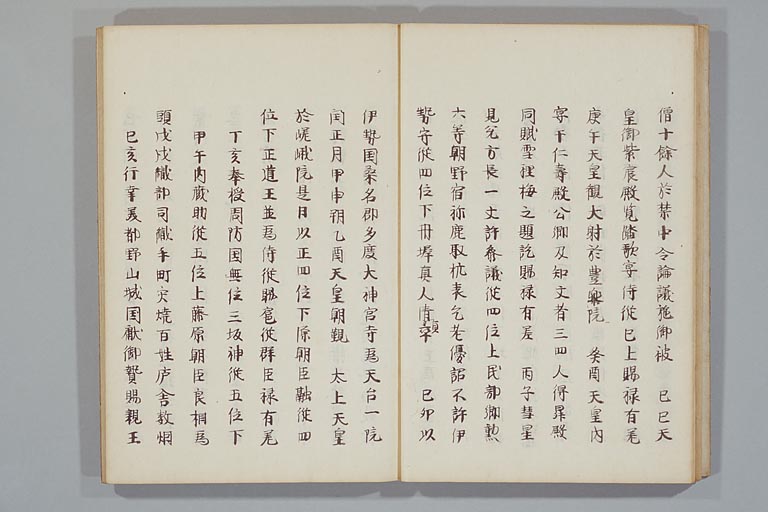 僧十餘人於禁中令論議施御被　己巳天
皇御紫宸殿覧踏歌宴侍従已上賜禄有差
庚午天皇観大射於豊樂院　癸酉天皇内
宴于仁壽殿公卿及知文者三四人得昇殿
同賦雪裡梅之題訖賜禄有差　丙子彗星
見竟方長一丈許参議従四位上民部卿勲
六等朝野宿祢鹿取抗表乞老優詔不許伊
勢守従四位下丹墀真人清貞卒　己卯以
伊勢国桑名郡多度大神宮寺為天台一院
閏正月甲申朔乙酉天皇朝覲　太上天皇
於嵯峨院是日以正四位下源朝臣融従四
位下正道王並為侍従賜扈従群臣禄有差
丁亥奉授周防国無位三坂神従五位下
甲午内蔵助従五位上藤原朝臣良相為
頭戊戌織部司織手町灾焼百姓庐舎数烟
己亥行幸芙都野山城国献御贄賜親王